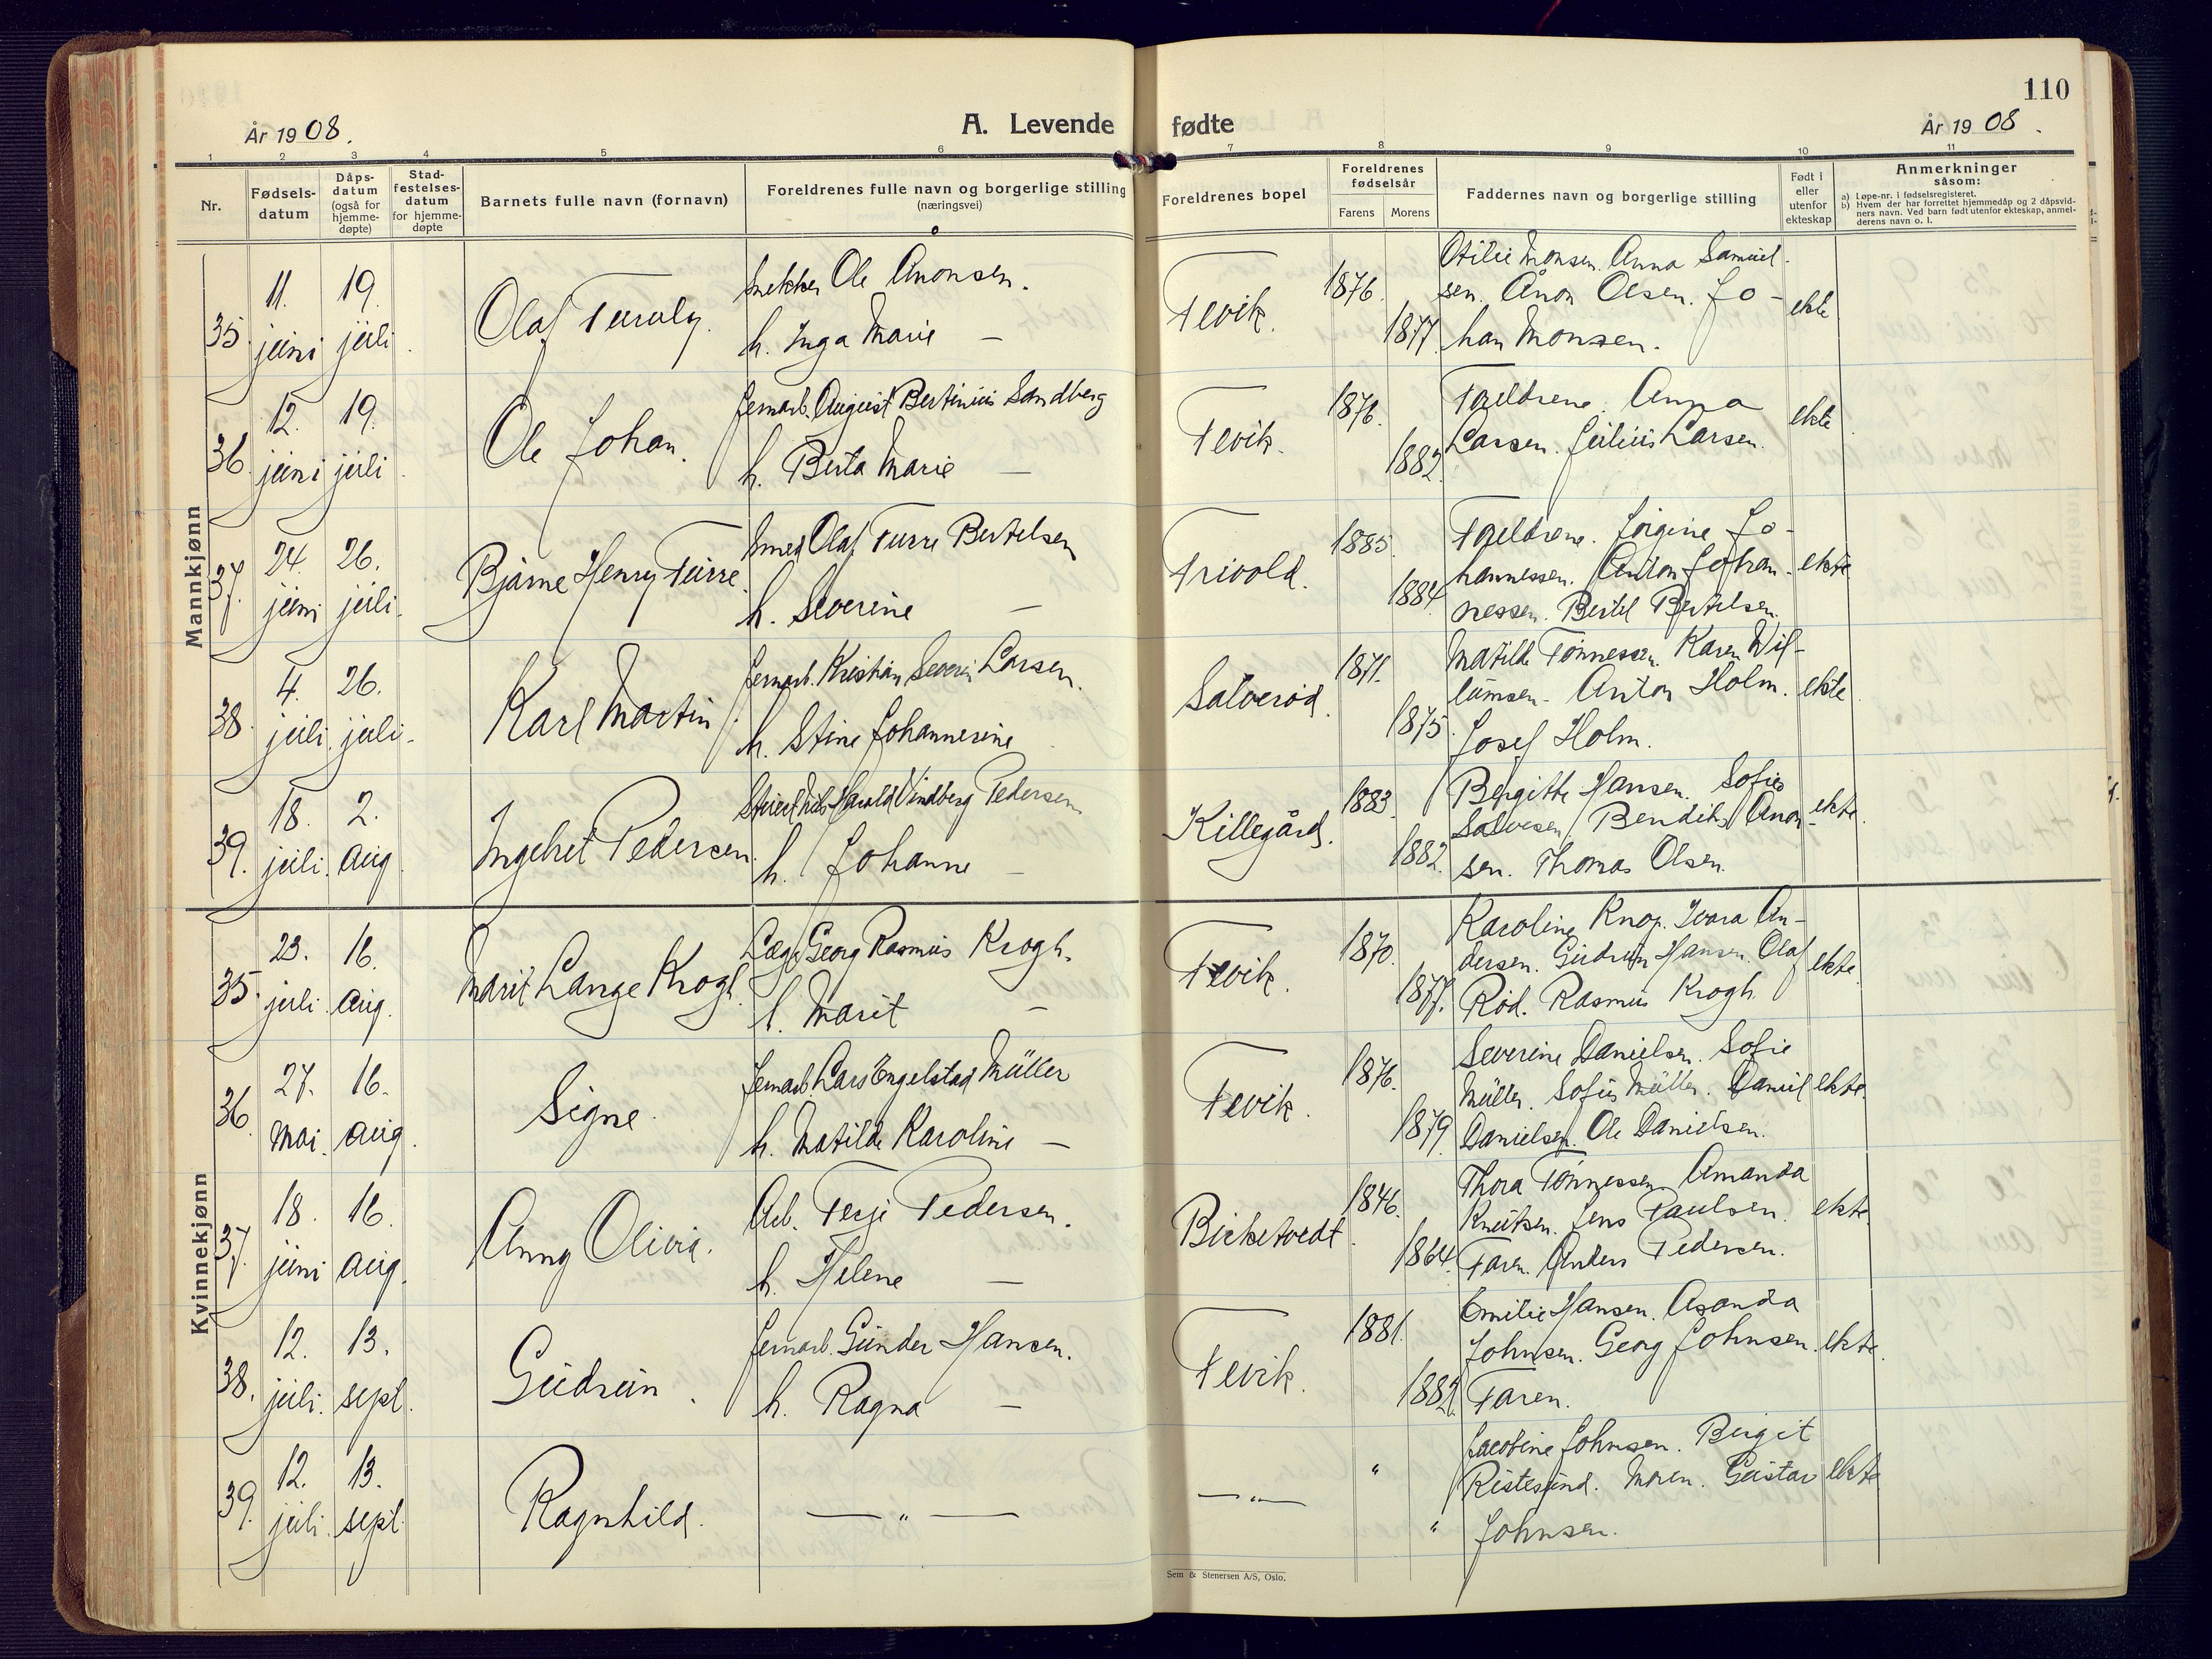 110
År 1908.
A. Levende fødte
År 1908.
1 2 3 4 5 6 7 8 9 10 11
Nr.
Fødsels-
datum
Dåps-
datum
(også for
hjemme-
døpte)
Stad-
festelses-
datum
for hjemme-
døpte
Barnets fulle navn (fornavn)
Foreldrenes fulle navn og borgerlige stilling
(næringsvei)
Foreldrenes bopel
Foreldrenes
fødselsår
Farens Morens
Faddernes navn og borgerlige stilling
Født i
eller
utenfor
ekteskap
Anmerkninger
såsom:
a) Løpe-nr. i fødselsregisteret.
b) Hvem der har forrettet hjemmedåp og 2 dåpsvid-
ners navn. Ved barn født utenfor ekteskap, anmel-
derens navn o. l.
Mannkjønn
35.
11.
juni
19.
juli
Olaf
Snekker Ole Ånonsen.
h. Inga Marie —
Fevik.
1876.
1877.
Otilie Monsen. Anna Samuel-
sen. Ånon Olsen. Jo-
han Monsen.
ekte
36.
12.
juni
19.
juli
Ole Johan.
Jernarb. August Bertinius Sandberg
h. Berta Marie —
Fevik.
1876.
1882.
Foreldrene. Anna
Larsen. Julius Larsen.
ekte
37.
24.
juni
26.
juli.
Bjarne Henry Turre.
Smed Olaf Turre Bertelsen
h. Severine —
Frivold.
1885.
1884.
Foreldrene. Jørgine Jo-
hannessen. Anton Johan-
nessen. Bertel Bertelsen.
ekte
38.
4.
juli.
26.
juli.
Karl Martin.
Jernarb. Kristian Severin Larsen.
h. Stine Johannesine
Salverød.
1871.
1875.
Matilde Tønnessen. Karen Wil-
lumsen. Anton Holm.
Josef Holm.
ekte
39.
18.
juli.
2.
aug.
Ingebret Pedersen.
Harald Vindberg Pedersen
h. Johanne —
Killegård.
1883.
1882.
Bergitte Hansen. Sofie
Salvesen. Bendiks Anon-
sen. Thomas Olsen.
ekte.
Kvinnekjønn
35.
23.
juli.
16.
aug.
Marit Lange Krogh.
Læge Georg Rasmus Krogh.
h. Marit —
Fevik.
1870.
1877.
Karoline Knop. Ivara An-
dersen. Gudrun Hansen. Olaf
Rød. Rasmus Krogh.
ekte.
36.
27.
mai.
16.
aug.
Signe.
Jernarb. Lars Engelstad Müller
h. Matilde Karoline —
Fevik.
1876.
1879.
Severine Danielsen. Sofie
Müller. Sofus Müller. Daniel
Danielsen. Ole Danielsen.
ekte.
37.
18.
juni
16.
aug.
Anny Olivia.
Arb. Terje Pedersen.
h. Helene —
Birketvedt.
1846.
1864.
Thora Tønnessen. Amanda
Knutsen. Jens Paulsen.
Faren. Anders Pedersen.
ekte.
38.
12.
juli.
13.
sept.
Gudrun.
Jernarb. Gunder Hansen.
h. Ragna —
Fevik.
1881.
1882.
Emilie Hansen. Asanda
Johnsen. Georg Johnsen.
Faren.
ekte.
39.
12.
juli.
13.
sept.
Ragnhild.
— " —
— " —
"
"
Jacobine Johnsen. Birgit
Ristesund. Moren. Gustav
Johnsen.
ekte
Sem & Stenersen A/S, Oslo.